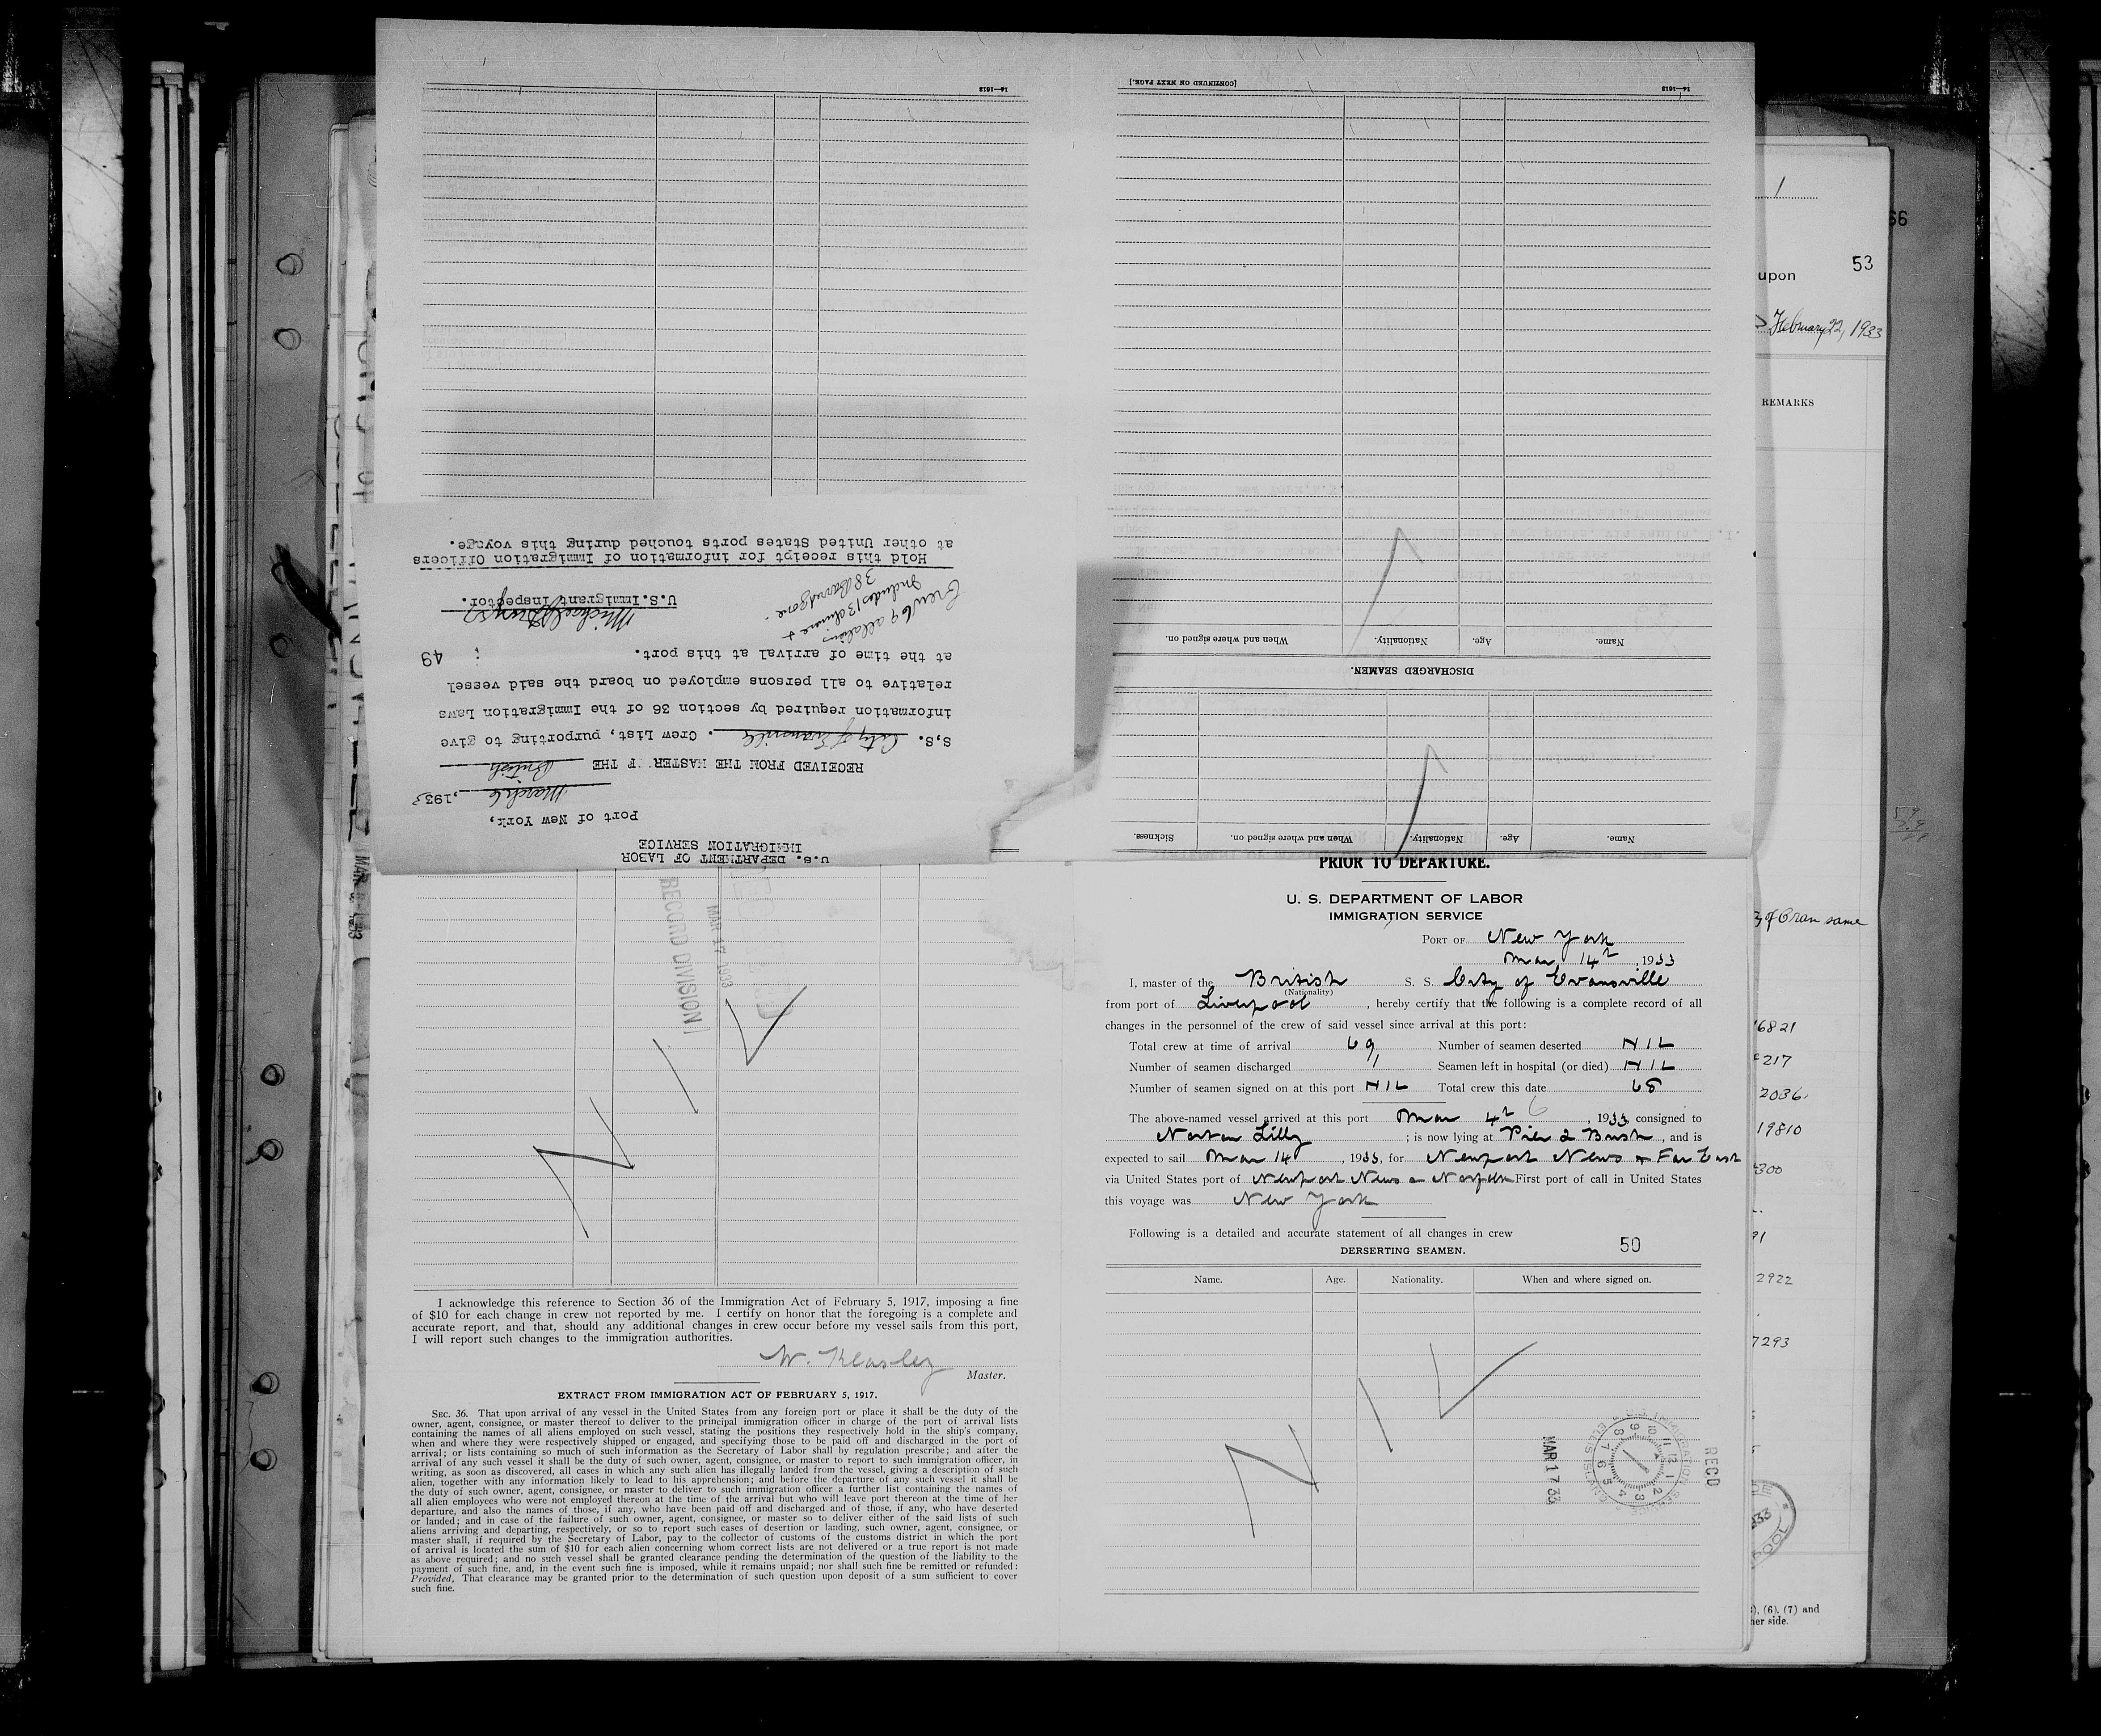 14—1613
[CONTINUED ON NEXT PAGE.]
14—1613
Name. Age. Nationality. When and where signed on.
DISCHARGED SEAMEN.
Name. Age. Nationality. When and where signed on. Sickness.
U.S. DEPARTMENT OF LABOR
IMMIGRATION SERVICE
Port of New York,
March 6, 1933
RECEIVED FROM THE MASTER OF THE British
S.S. City of Evansville. Crew List, purporting to give
information required by section 36 of the Immigration Laws
relative to all persons employed on board the said vessel
at the time of arrival at this port.
49
Crew 69 all aliens
Includes 13 Chinese +
38 Barred zone.
U.S. Immigrant Inspector.
Hold this receipt for information of Immigration Officers
at other United States ports touched during this voyage.
RECORD DIVISION
MAR 17 1933
NIL
I acknowledge this reference to Section 36 of the Immigration Act of February 5, 1917, imposing a fine
of $10 for each change in crew not reported by me. I certify on honor that the foregoing is a complete and
accurate report, and that, should any additional changes in crew occur before my vessel sails from this port,
I will report such changes to the immigration authorities.
W. Kearley
Master.
EXTRACT FROM IMMIGRATION ACT OF FEBRUARY 5, 1917.
SEC. 36. That upon arrival of any vessel in the United States from any foreign port or place it shall be the duty of the
owner, agent, consignee, or master thereof to deliver to the principal immigration officer in charge of the port of arrival lists
containing the names of all aliens employed on such vessel, stating the positions they respectively hold in the ship's company,
when and where they were respectively shipped or engaged, and specifying those to be paid off and discharged in the port of
arrival; or lists containing so much of such information as the Secretary of Labor shall by regulation prescribe; and after the
arrival of any such vessel it shall be the duty of such owner, agent, consignee, or master to report to such immigration officer, in
writing, as soon as discovered, all cases in which any such alien has illegally landed from the vessel, giving a description of such
alien, together with any information likely to lead to his apprehension; and before the departure of any such vessel it shall be
the duty of such owner, agent, consignee, or master to deliver to such immigration officer a further list containing the names of
all alien employees who were not employed thereon at the time of the arrival but who will leave port thereon at the time of her
departure, and also the names of those, if any, who have been paid off and discharged and of those, if any, who have deserted
or landed; and in case of the failure of such owner, agent, consignee, or master so to deliver either of the said lists of such
aliens arriving and departing, respectively, or so to report such cases of desertion or landing, such owner, agent, consignee, or
master shall, if required by the Secretary of Labor, pay to the collector of customs of the customs district in which the port
of arrival is located the sum of $10 for each alien concerning whom correct lists are not delivered or a true report is not made
as above required; and no such vessel shall be granted clearance pending the determination of the question of the liability to the
payment of such fine, and, in the event such fine is imposed, while it remains unpaid; nor shall such fine be remitted or refunded:
Provided, That clearance may be granted prior to the determination of such question upon deposit of a sum sufficient to cover
such fine.
PRIOR TO DEPARTURE.
U. S. DEPARTMENT OF LABOR
IMMIGRATION SERVICE
PORT OF New York
Mar 14th, 1933
I, master of the British S. S. City of Evansville
(Nationality)
from port of Liverpool, hereby certify that the following is a complete record of all
changes in the personnel of the crew of said vessel since arrival at this port:
Total crew at time of arrival 69 Number of seamen deserted NIL
Number of seamen discharged 1 Seamen left in hospital (or died) NIL
Number of seamen signed on at this port NIL Total crew this date 68
The above-named vessel arrived at this port Mar 4th 6, 1933, consigned to
Norton Lilly; is now lying at Pier 2 Bush, and is
expected to sail Mar 14, 1933, for Newport News & Far East
via United States port of Newport News & Norfolk First port of call in United States
this voyage was New York
Following is a detailed and accurate statement of all changes in crew
50
DERSERTING SEAMEN.
Name. Age. Nationality. When and where signed on.
NIL
MAR 17 33
RECD
U.S. IMMIGRATION SERVICE
ELLIS ISLAND
1
66
53
upon
February 22, 1933
REMARKS
of Oran same
16821
217
2036
19810
300
91
2922
7293
(6), (7) and
her side.